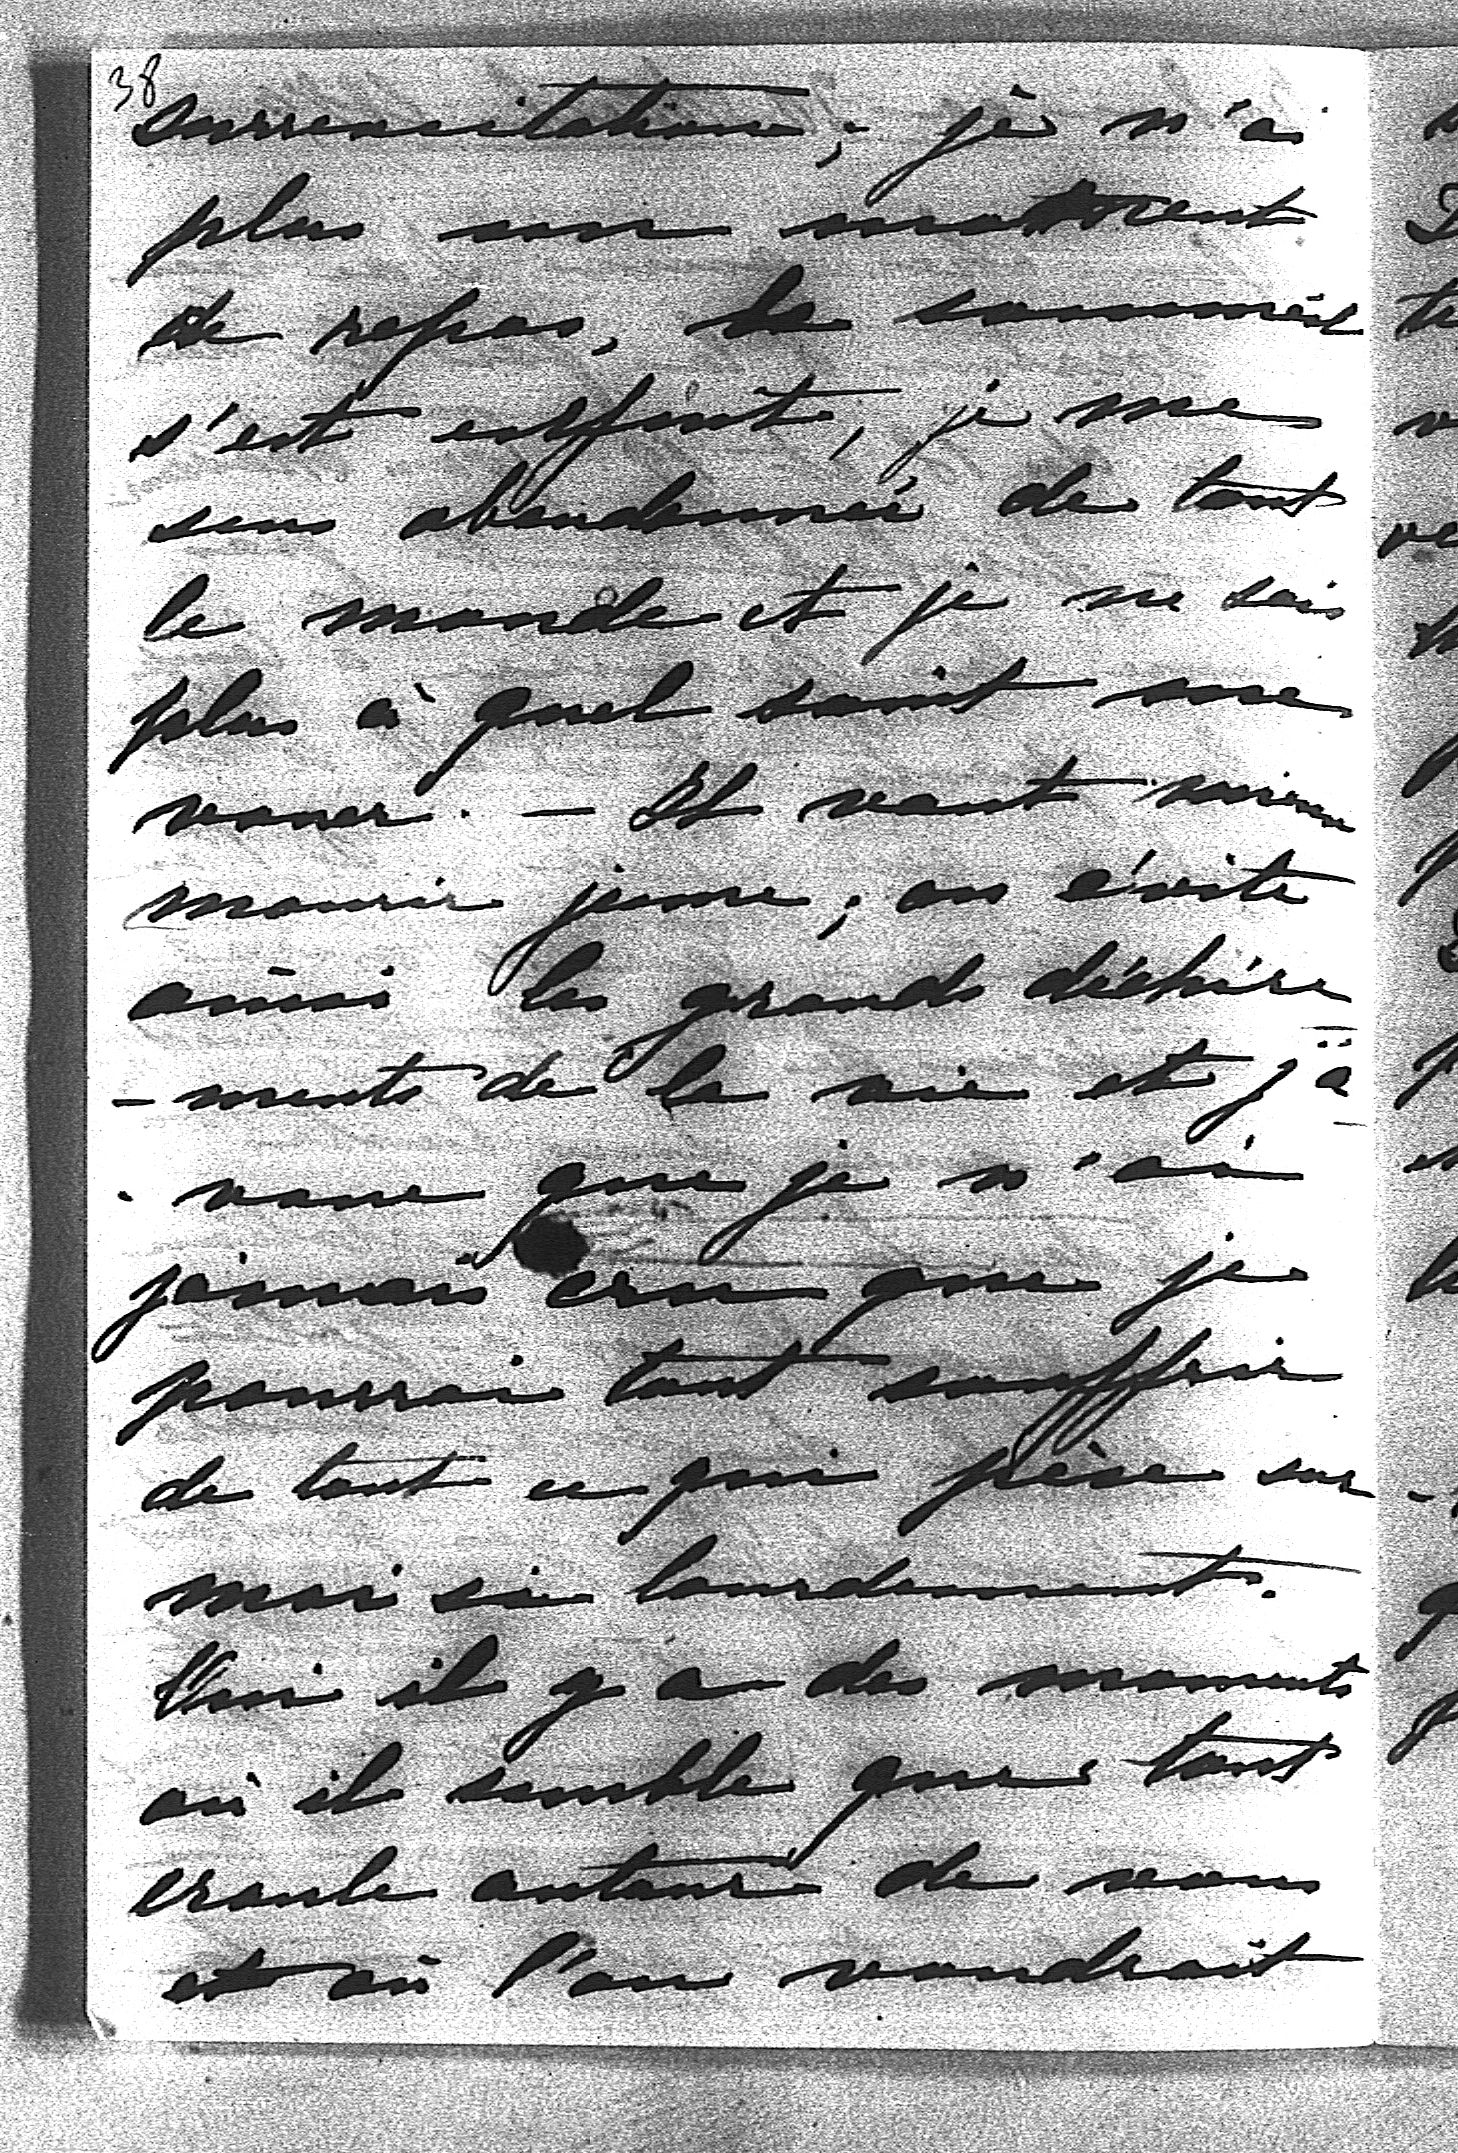 38
surrexcitation; je n'ai
plus un moment
de repos, le sommeil
s'est enfuit, je me
sens abandonnée de tout
le monde et je ne sais
plus à quel saint me
vouer. — Il vaut mieux
mourir jeune; on évite
ainsi les grands déchire
- ments de la vie et j'a
- voue que je n'ai
jamais cru que je
pourrai tant souffrir
de tout ce qui pèse sur
moi si lourdement.
Oui il y a des moments
où il semble que tout
croule autour de vous
et où l'on voudrait